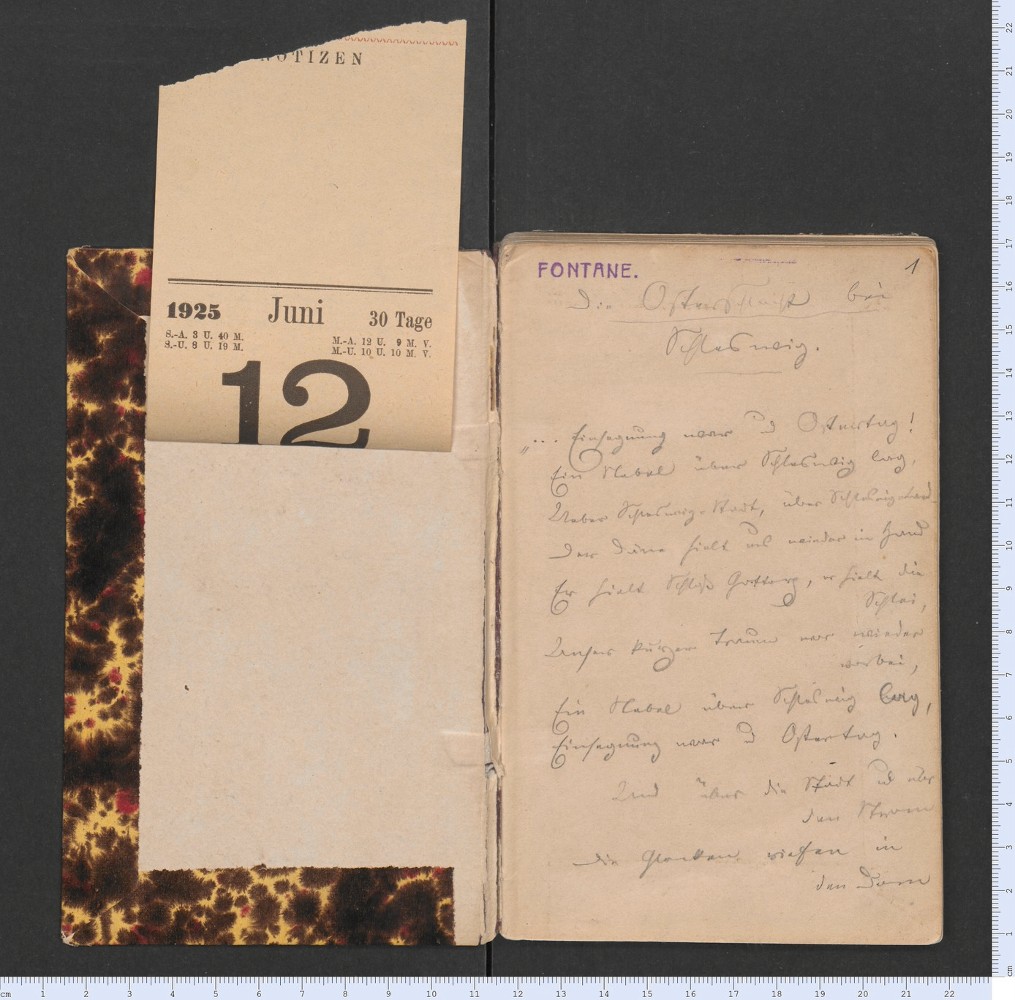 NOTIZEN
1925 Juni 30 Tage
S.-A. 3 U. 40 M.
S.-U. 8 U. 19 M.
M.-A. 12 U. 9 M. V.
M.-U. 10 U. 10 M. V.
12
FONTANE.
1
Die Osterschlacht bei
Schleswig.
„... Einsegnung war und Ostertag!
Ein Nebel über Schleswig lag,
Ueber Schleswig-Stadt, über Schleswig-Land
Der Däne hielt uns wieder in Hand
Er hielt Schloß Gottorp, er hielt die
Schlei,
Unser kurzer Traum war wieder
vorbei,
Ein Nebel über Schleswig lag,
Einsegnung war und Ostertag.
Und über die Stadt und über
den Strom
Die Glocken riefen in
den Dom